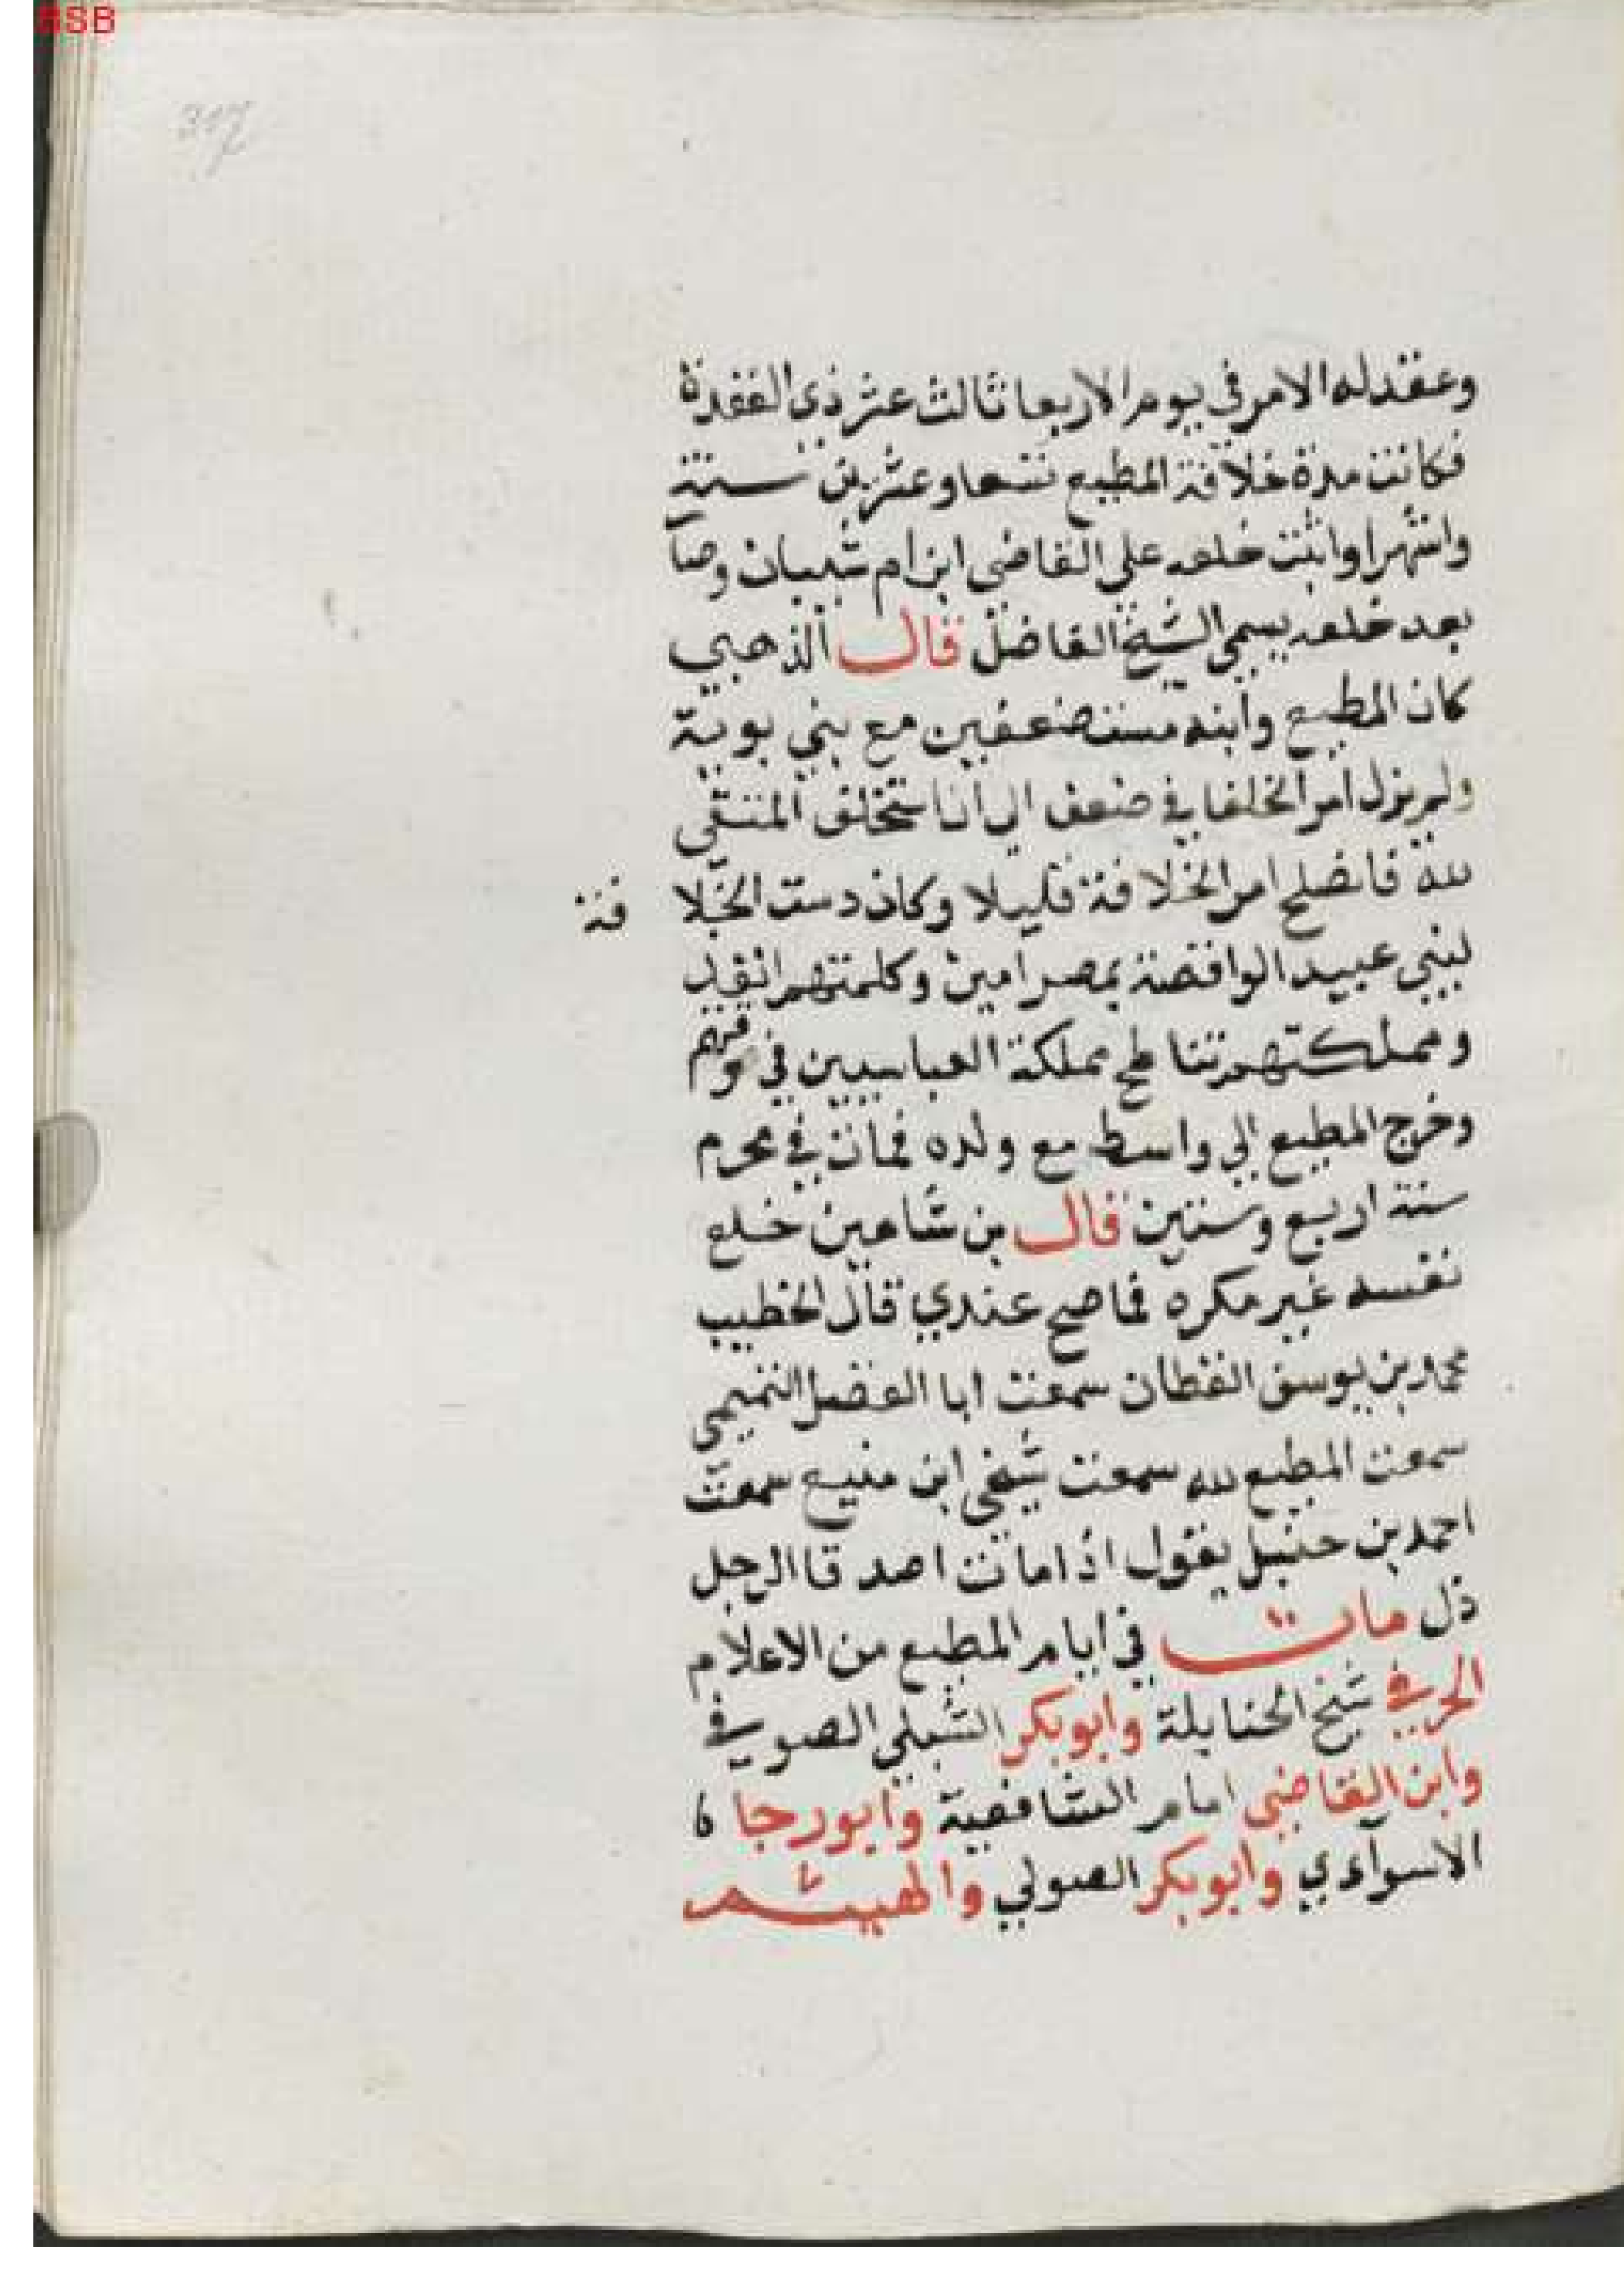 HSB
317
وعقد له الامر في يوم الاربعا ثالث عشر ذي القعدة
فكانت مدة خلافة المطيع تسعا وعشرين سنة
واشهرا واثبت خلعه على القاضي ابن ام شيبان وصا
بعد خلعه يسمي الشيخ الفاضل قال الذهبي
كان المطيع وابنه مستضعفين مع بني بوية
ولم يزل امر الخلفا في ضعف الي ان استخلف المتقي
لله فانصلح امر الخلافة قليلا وكان دست الخلا فة
لبني عبيد الوافضة بمصر امين وكلمتهم انفد
ومملكتهم تناطح مملكة العباسيين في وقتهم
وخرج المطيع الي واسط مع ولده فمات في محرم
سنة اربع وستين قال بن شاهين خلع
نفسه غير مكره فماصح عندي قال الخطيب
محمد بن يوسف القطان سمعت ابا الفضل التميمي
سمعت المطيع لله سمعت شيخي ابن منيع سمعت
احمد بن حنبل يقول اذا مات اصدقا الرجل
ذل مات في ايام المطيع من الاعلام
الخرقي شيخ الحنابلة وابوبكر الشبلي الصوفي
وابن القاضي امام الشافعية وابورجا
الاسواءدي وابوبكر الصولي والهيثم